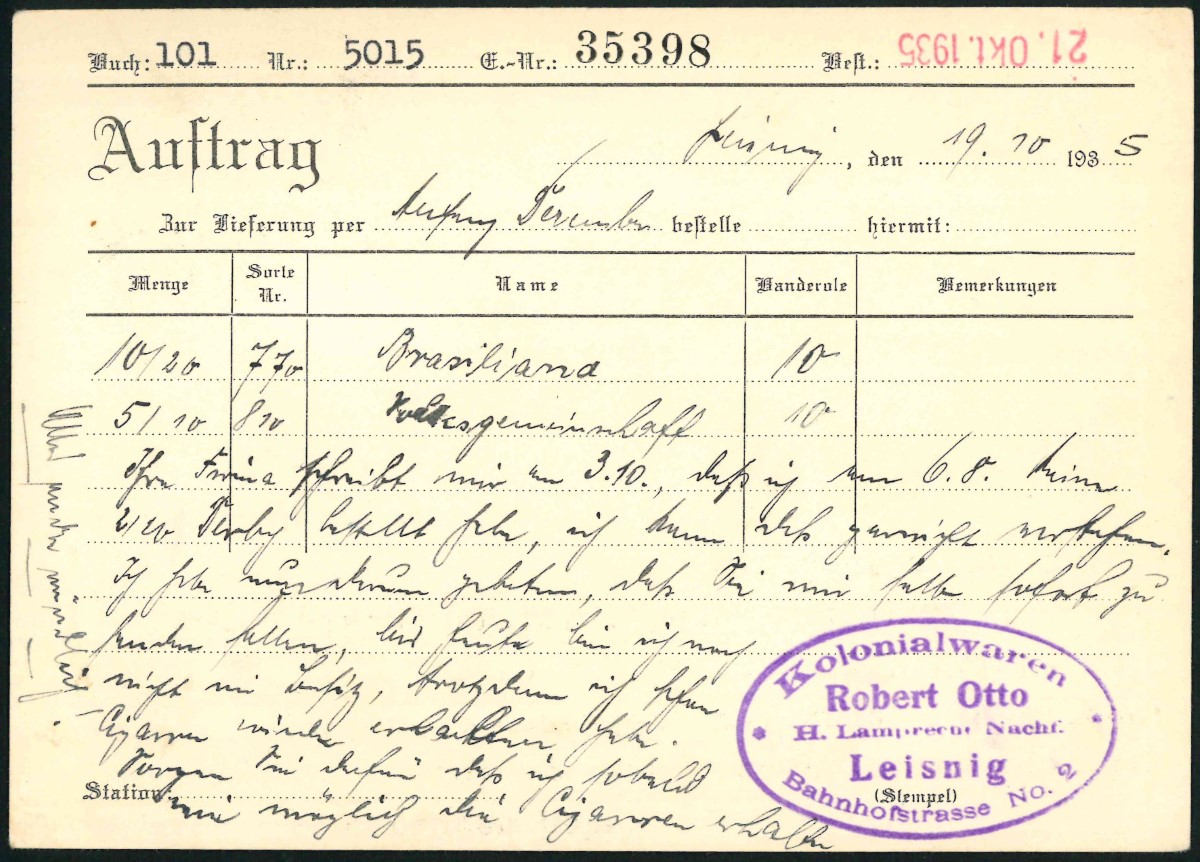 Buch: 101 Nr.: 5015 E.-Nr.: 35398 Best.: 21. Okt. 1935
Auftrag
Leisnig, den 19. 10 1935
Zur Lieferung per Anfang Dezember bestelle hiermit:
Menge Sorte Nr. Name Banderole Bemerkungen
10/20 770 Brasiliana 10
5/10 810 Volksgemeinschaft 10
Ihre Firma schreibt mir am 3.10., daß ich am 6.8. keine
2/20 Derby bestellt habe, ich kann das garnicht verstehen.
Ich habe nur darum gebeten, daß Sie mir selbe sofort zu
senden sollen, bis heute bin ich noch
nicht im Besitz, trotzdem ich schon
Cigarren wieder erhalten habe.
Sorgen Sie dafür daß ich sobald
wie möglich die Cigarren erhalte
Station
Kolonialwaren
Robert Otto
H. Lamprecht Nachf.
Leisnig
(Stempel)
Bahnhofstrasse No. 2